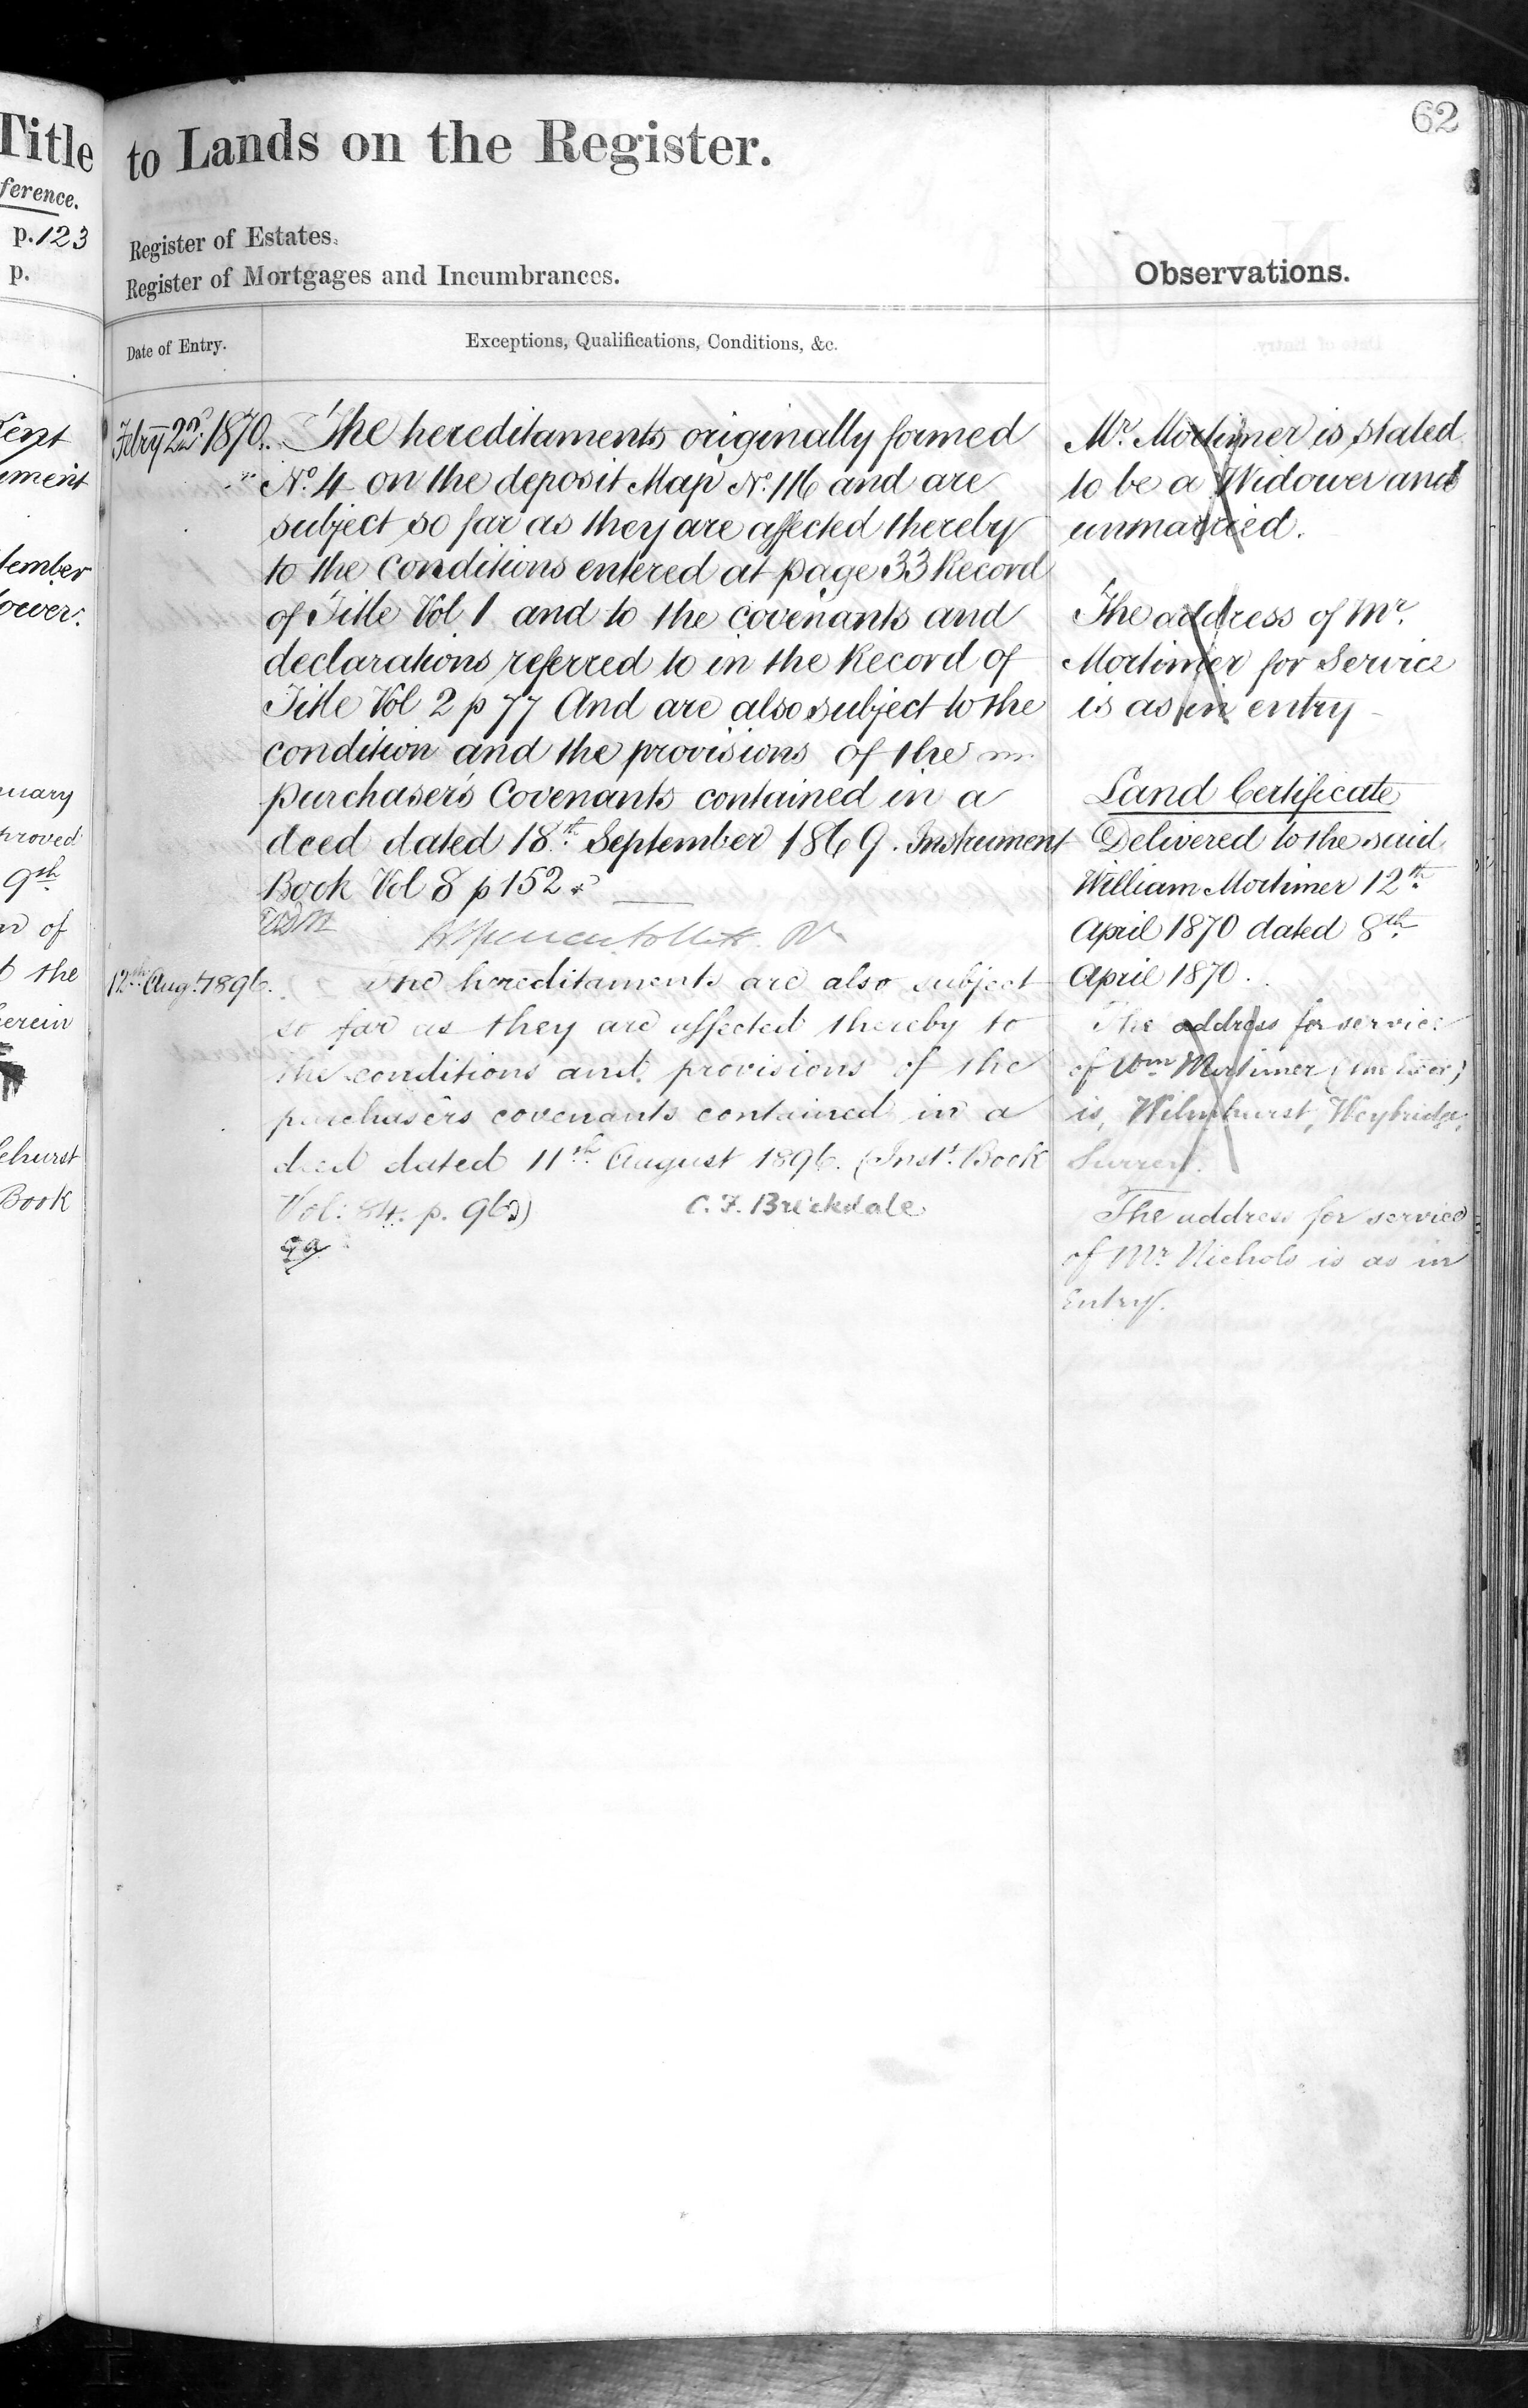 Title
ference.
p. 123
p.
Kent
ment
tember
ower.
uary
proved
9th
of
the
herein
ehurst
Book
62
to Lands on the Register.
Register of Estates.
Register of Mortgages and Incumbrances.
Observations.
Date of Entry.
Exceptions, Qualifications, Conditions, &c.
Febry 22nd 1870.
The hereditaments originally formed
No. 4 on the deposit Map No. 116 and are
subject so far as they are affected thereby
to the Conditions entered at page 33 Record
of Title Vol 1 and to the covenants and
declarations referred to in the Record of
Title Vol 2 p 77 And are also subject to the
condition and the provisions of the
purchaser's Covenants contained in a
deed dated 18th September 1869. Instrument
Book Vol 8 p 152
12th Augt 1896.
The hereditaments are also subject
so far as they are affected thereby to
the conditions and provisions of the
purchasers covenants contained in a
deed dated 11th August 1896. (Inst. Book
Vol: 84. p. 96)
C. F. Brickdale
Mr. Mortimer is stated
to be a Widower and
unmarried.
The address of Mr.
Mortimer for Service
is as in entry
Land Certificate
Delivered to the said
William Mortimer 12th
April 1870 dated 8th
April 1870.
The address for service
of Wm Mortimer
is, Wilmhurst, Weybridge,
Surrey.
The address for service
of Mr Nichols is as in
Entry.